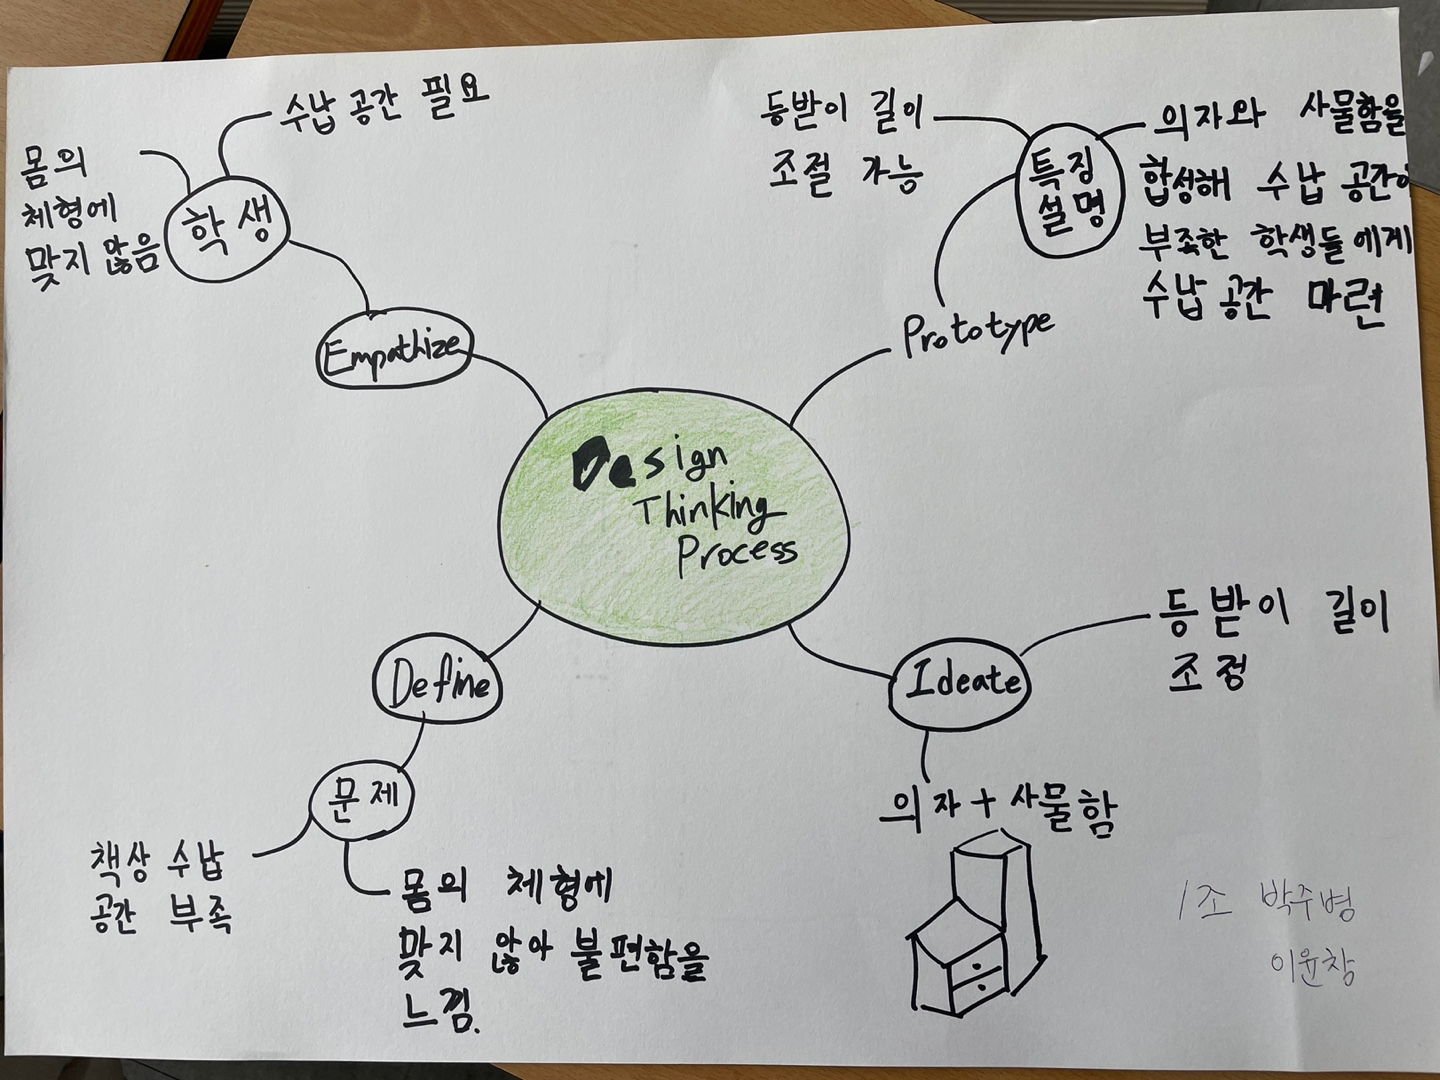 수납 공간 필요
몸의
체형에
맞지 않음
학생
Empathize
등받이 길이
조절 가능
특징
설명
의자와 사물함을
합성해 수납 공간이
부족한 학생들에게
수납 공간 마련
Prototype
Design
Thinking
Process
Define
문제
책상 수납
공간 부족
몸의 체형에
맞지 않아 불편함을
느낌.
Ideate
등받이 길이
조정
의자 + 사물함
1조 박주병
이윤창